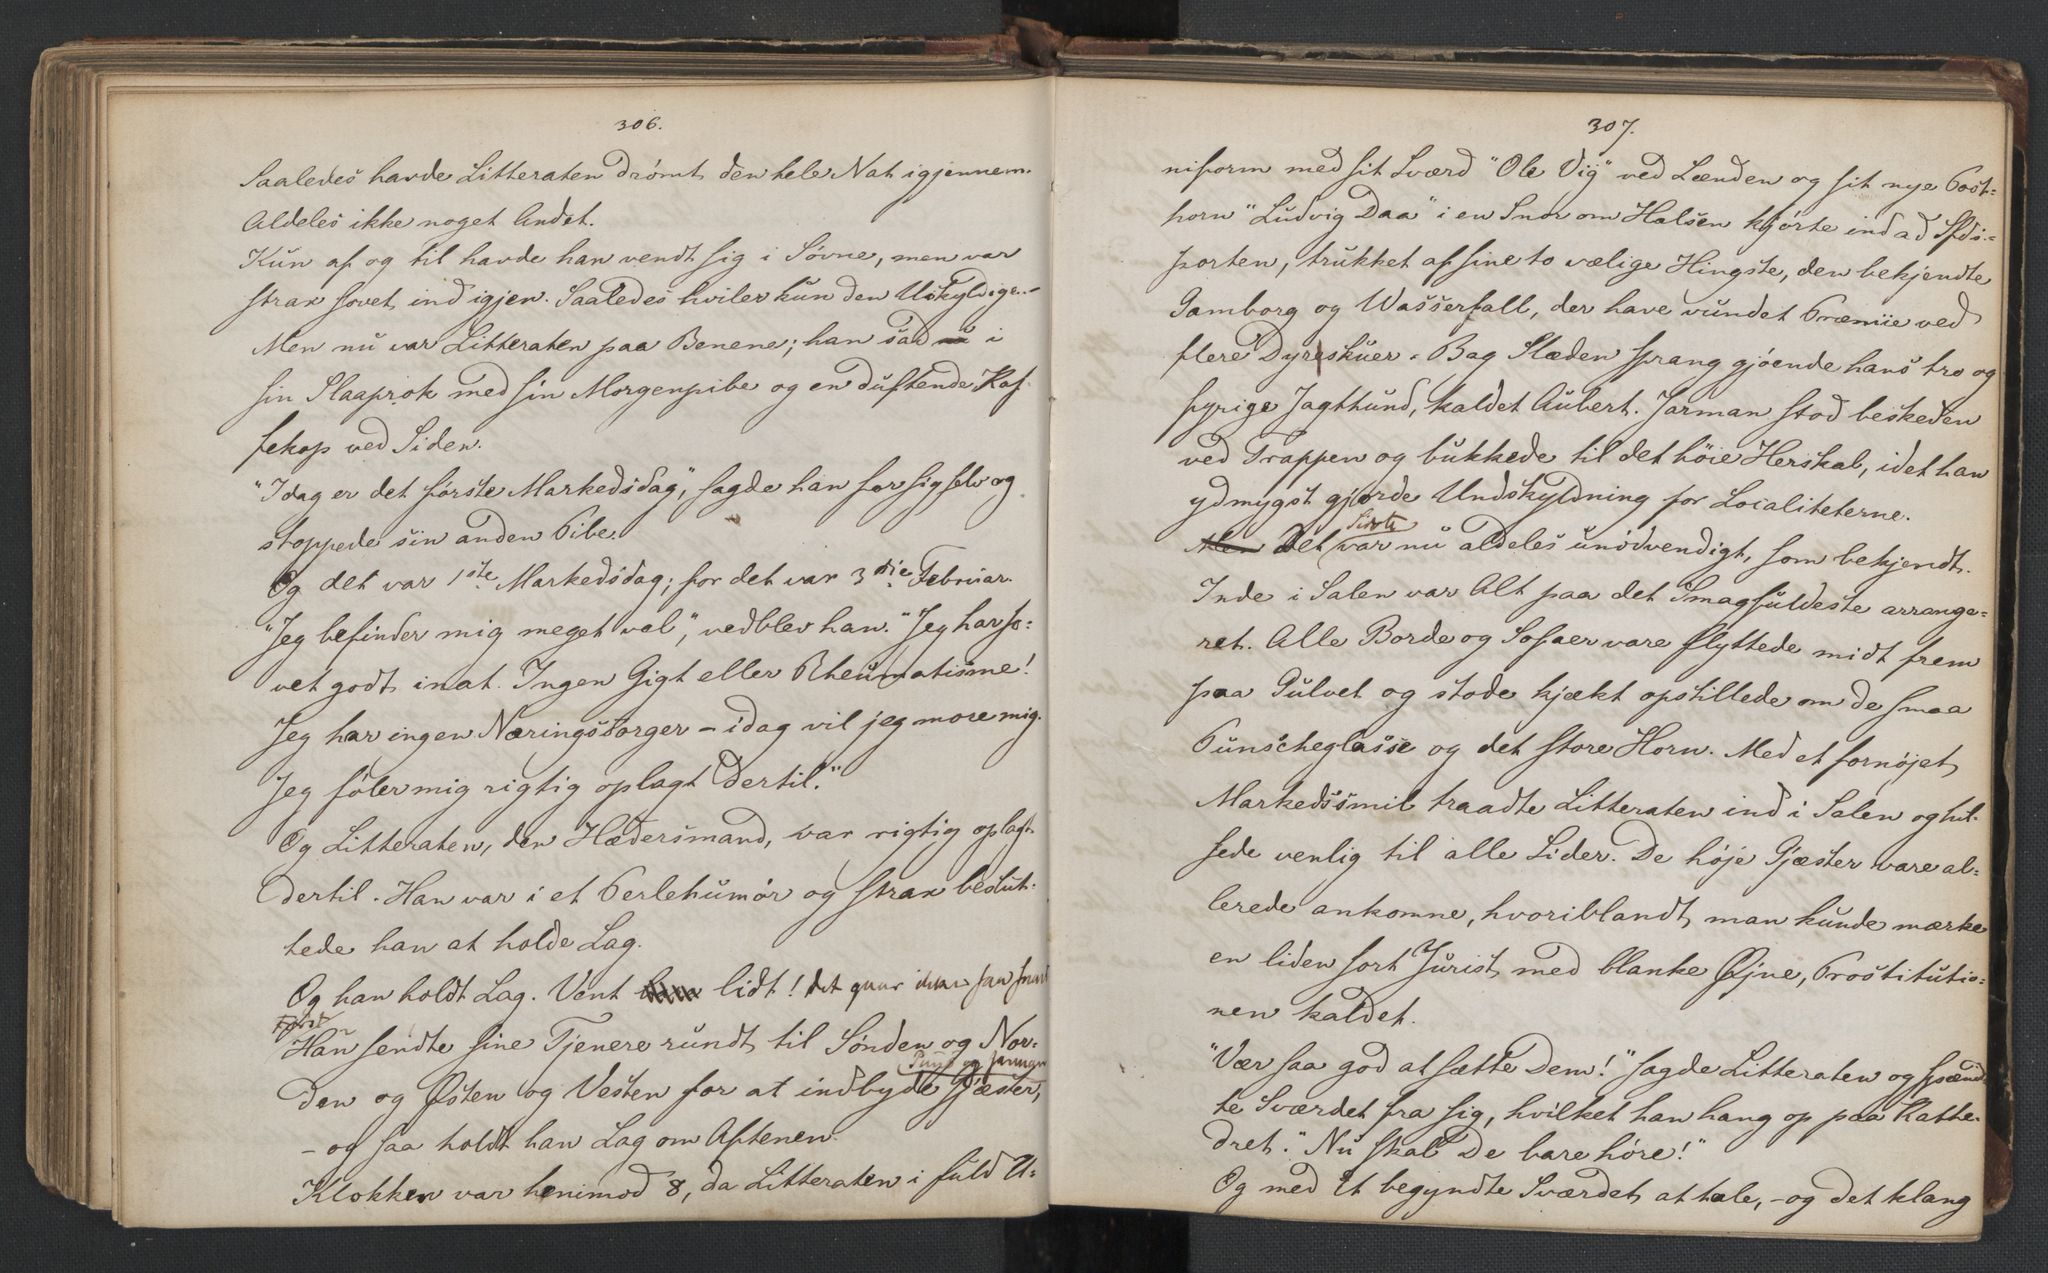 306.
Saaledes havde Litteraten drömt den hele Nat igjennem.
Aldeles ikke noget Andet.
Kun af og til havde han vendt sig i Søvne, men var
strax sovet ind igjen. Saaledes hviler kun den Uskyldige.-
Men nu var Litteraten paa Benene; han sad i
sin Slaaprok med sin Morgenpibe og en duftende Kaf-
fekop ved Siden.
"Idag er det förste Markedsdag", sagde han for sig selv og
stoppede sin anden Pibe.
Og det var 1ste Markedsdag; for det var 3die Februar.
"Jeg befinder mig meget vel", vedblev han. "Jeg har so=
vet godt inat. Ingen Gigt eller Rheumatisme!
Jeg har ingen Næringssorger - idag vil jeg more mig.
Jeg föler mig rigtig oplagt dertil."
Og Litteraten, den Hædersmand, var rigtig oplagt
dertil. Han var i et Perlehumör og strax beslut-
tede han at holde Lag.
Og han holdt Lag. Vent lidt! det gaar ikke saa snart
Først
Han sendte sine Tjenere rundt til Sønden og Nor-
og Jarman
den og Østen og Vesten for at indbyde Gjæster,
- og saa holdt han Lag om Aftenen.
Klokken var henimod 8, da Litteraten i fuld U=
307.
niform med sit Sværd "Ole Vig" ved Lænden og sit nye Post-
horn "Ludvig Daa" i en Snor om Halsen kjörte ind ad
porten, trukket af sine to vælige Hingste, den bekjendte
Gamborg og Wasserfall, der have vundet Præmie ved
flere Dyreskuer. Bag Slæden sprang gjöende hans tro og
fyrige Jagthund, kaldet Aubert. Jarman stod beskeden
ved Trappen og bukkede til det höie Herskab, idet han
ydmygst gjorde Undskyldning for Localiteterne.
Sidste
Men Det var nu aldeles unödvendigt, som bekjendt.
Inde i Salen var Alt paa det Smagfuldeste arrange=
ret. Alle Borde og Sofaer vare flyttede midt frem
paa Gulvet og stode kjækt opstillede om de smaa
Punscheglasse og det store Horn. Med et fornøjet
Markedssmil traadte Litteraten ind i Salen og hil-
sede venlig til alle Sider. De høje Gjæster vare al=
lerede ankomne, hvoriblandt man kunde mærke
en liden sort Jurist med blanke Øjne, Prostitutio=
nen kaldet.
"Vær saa god at sætte Dem!" sagde Litteraten og spænd
te Sværdet fra sig, hvilket han hang op paa Kathe-
dret. "Nu skal De bare høre!"
Og med Et begyndte Sværdet at tale, - og det klang